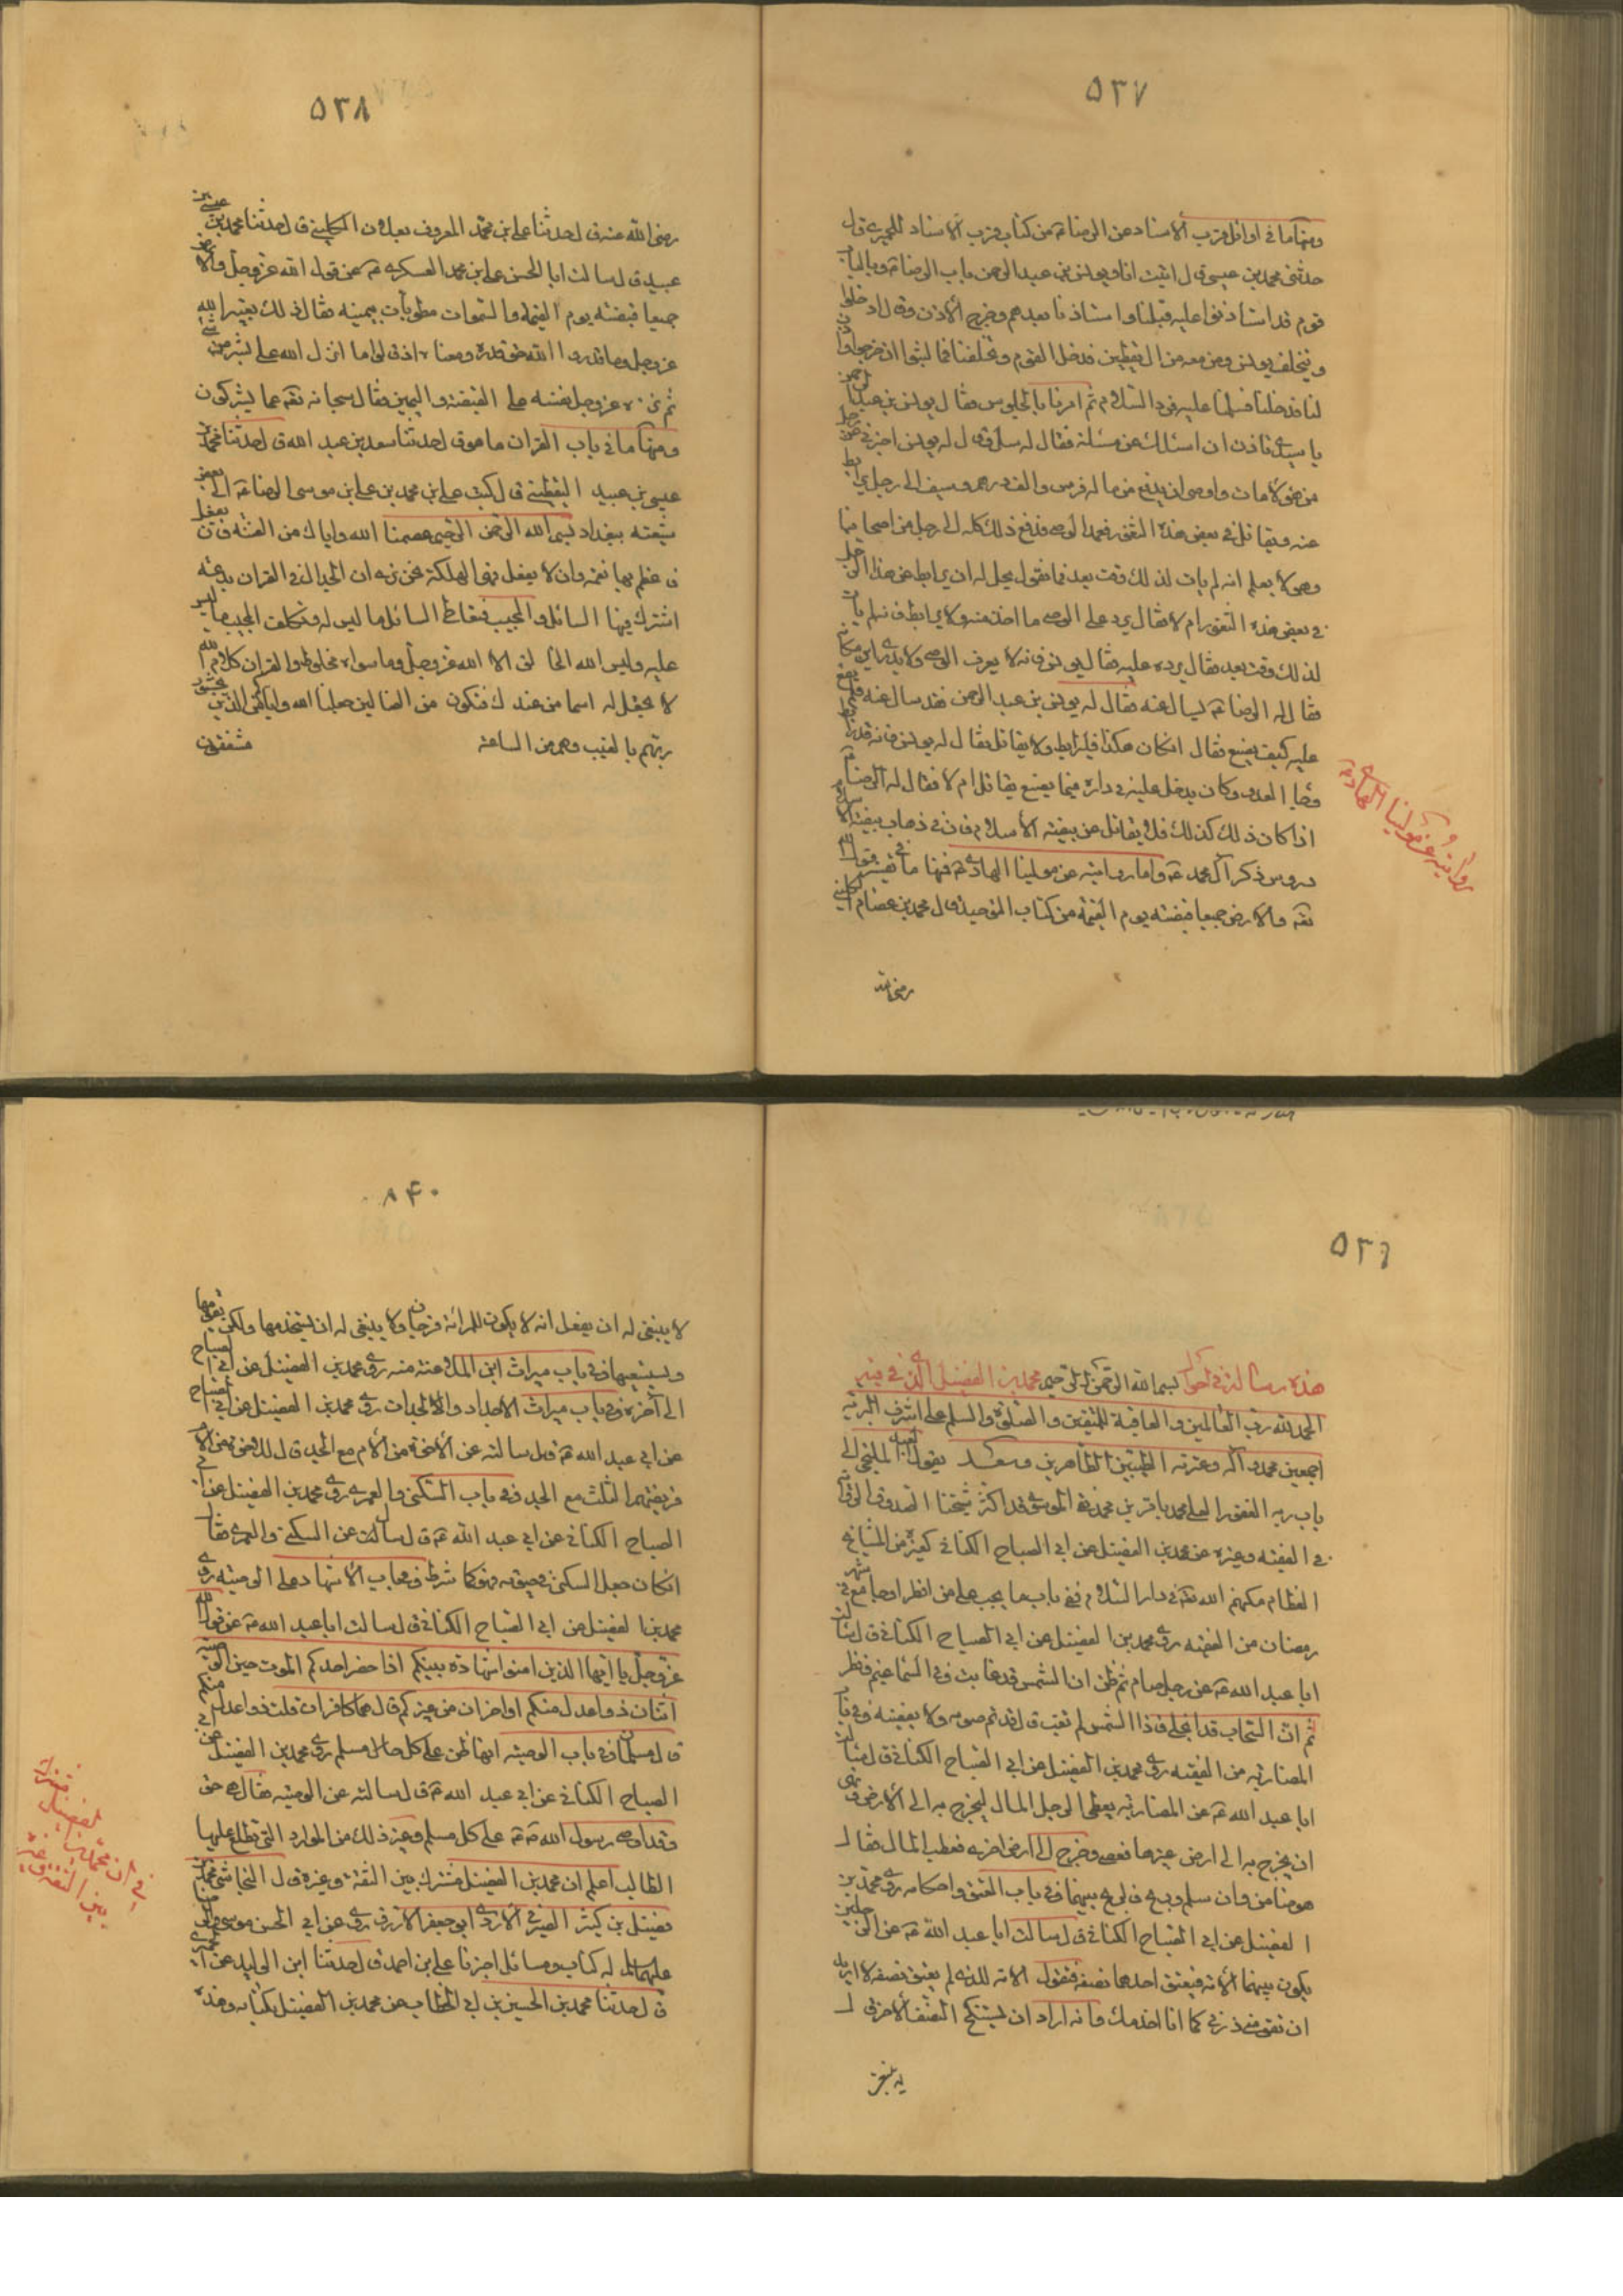 ٥٣٧
ومنها ما في اوائل قرب الاسناد عن الرضا ع من كتاب قرب الاسناد للحميري قال
حدثني محمد بن عيسى قال اتيت انا ويونس بن عبد الرحمن باب الرضا ع وبالباب
قوم قد استأذنوا عليه قبلنا واستاذنا بعدهم وخرج الاذن وقال ادخلوا
ويتخلف يونس ومن معه من ال يقطين فدخل القوم وتخلفنا فما لبثوا ان خرجوا واذن
لنا فدخلنا فسلمنا عليه فرد السلام ثم امرنا بالجلوس فقال يونس بن عبد الرحمن
يا سيدي تاذن ان اسئلك عن مسئلة فقال له سل فقال له يونس اخبرني عن رجل
من هؤلاء مات واوصى ان يدفع من ماله فرس والف درهم وسيف الى رجل يرابط
عنه ويقاتل في بعض هذه الثغور فعمد الوصي فدفع ذلك كله الى رجل من اصحابنا
وهو لا يعلم انه لم يات لذلك وقت بعد فما تقول يحل له ان يرابط عن هذا الرجل
في بعض هذه الثغور ام لا فقال يرد على الوصي ما اخذ منه ولا يرابط فانه لم يات
لذلك وقت بعد فقال يرده عليه فقال يونس فانه لا يعرف الوصي ولا يدري اين مكانه
فقال له الرضا ع يسال عنه فقال له يونس بن عبد الرحمن فقد سال عنه فلم يقع
عليه كيف يصنع فقال ان كان هكذا فليرابط ولا يقاتل فقال له يونس فانه قد رابط
وجاء العدو وكاد ان يدخل عليه في داره فيما يصنع يقاتل ام لا فقال له الرضا ع
اذا كان ذلك كذلك فلا يقاتل عن بيضة الاسلام فان في ذهاب بيضة الاسلام
دروس ذكر آل محمد ع واما روايته عن مولينا الهادي ع فمنها ما في تفسير قول الله
تعه والارض جميعا قبضته يوم القيمة من كتاب التوحيد قال محمد بن عصام الكليني
رضي الله
روايته عن مولينا الهادي ع
٥٣٨
رضي الله عنه قال حدثنا علي بن محمد المعروف بعلان الكليني قال حدثنا محمد بن عيسى بن
عبيد قال سالت ابا الحسن علي بن محمد العسكري ع عن قول الله عز وجل والارض
جميعا قبضته يوم القيمة والسموات مطويات بيمينه فقال ذلك تعيير الله
عز وجل وما قدروا الله حق قدره ومعناه اذ قالوا ما انزل الله على بشر من شئ
ثم نزه عز وجل نفسه على القبضة واليمين فقال سبحانه تعه عما يشركون
ومنها ما في باب القران ما هو قال حدثنا سعد بن عبد الله قال حدثنا محمد بن
عيسى بن عبيد اليقطيني قال كتب علي بن محمد بن علي بن موسى الرضا ع الى بعض
شيعته ببغداد بسم الله الرحمن الرحيم عصمنا الله واياك من الفتنة فان يفعل
فاعظم بها نعمة وان لا يفعل فهي الهلكة نحن نرى ان الجدال في القران بدعة
اشترك فيها السائل والمجيب فتعاطى السائل ما ليس له وتكلف المجيب ما ليس
عليه وليس الله الخالق الا الله عز وجل وما سواه مخلوق والقران كلام الله
لا تجعل له اسما من عندك فتكون من الضالين جعلنا الله واياك من الذين يخشون
ربهم بالغيب وهم من الساعة مشفقون
٥٣٩
هذه رسالة في احوال بسم الله الرحمن الرحيم محمد بن الفضيل الذي في فيه
الحمد لله رب العالمين والعاقبة للمتقين والصلوة والسلم على اشرف البرية
اجمعين محمد وآله وعترته الطيبين الطاهرين وبعد يقول العبد الملتجي الى
باب ربه الغفور العلي محمد باقر بن محمد نقي الموسوي قد اكثر شيخنا الصدوق الرواية
في الفقيه وغيره عن محمد بن الفضيل عن ابي الصباح الكناني كغيره من المشايخ
العظام مكنهم الله تعه في دار السلام ففي باب ما يجب على من افطر او جامع في شهر
رمضان من الفقيه روى محمد بن الفضيل عن ابي الصباح الكناني قال سالت
ابا عبد الله ع عن رجل صام ثم ظن ان الشمس قد غابت وفي السماء غيم فافطر
ثم ان السحاب قد انجلى فاذا الشمس لم تغب قال قد تم صومه ولا يقضيه وفي باب
المضاربة من الفقيه روى محمد بن الفضيل عن ابي الصباح الكناني قال سالت
ابا عبد الله ع عن المضاربة يعطى الرجل المال يخرج به الى الارض ونهى
ان يخرج به الى ارض غيرها فعصى وخرج الى ارض اخرى فعطب المال فقال
هو ضامن وان سلم وربح فالربح بينهما وفي باب العتق واحكامه روى محمد بن
الفضيل عن ابي الصباح الكناني قال سالت ابا عبد الله ع عن الرجلين
يكون بينهما الامة فيعتق احدهما نصفه فتقول الامة للذي لم يعتق نصفه لا اريد
ان تقومني ذرني كما انا اخدمك وانه اراد ان يستنكح النصف الاخر قال
لا ينبغي
٨٤٠
لا ينبغي له ان يفعل انه لا يكون للمرائة فرجان ولا ينبغي له ان يستخدمها ولكن يقومها
ويستسعيها وفي باب ميراث ابن الملاعنة منه روى محمد بن الفضيل عن ابي الصباح
الى آخره وفي باب ميراث الاجداد والجدات روى محمد بن الفضيل عن ابي الصباح
عن ابي عبد الله ع قال سالته عن الاخوة من الام مع الجد قال للاخوة من الام
فريضتهم الثلث مع الجد وفي باب السكنى والعمرى روى محمد بن الفضيل عن ابي
الصباح الكناني عن ابي عبد الله ع قال سالت عن السكنى والعمرى فقال
ان كان جعل السكنى في حيوته فهو كما شرط وفي باب الاشهاد على الوصية روى
محمد بن الفضيل عن ابي الصباح الكناني قال سالت ابا عبد الله ع عن قول الله
عز وجل يا ايها الذين امنوا شهادة بينكم اذا حضر احدكم الموت حين الوصية
اثنان ذوا عدل منكم او اخران من غيركم قال هما كافران قلت ذوا عدل منكم
قال مسلمان وفي باب الوصية انها حق على كل مسلم روى محمد بن الفضيل عن ابي
الصباح الكناني عن ابي عبد الله ع قال سالته عن الوصية فقال هي حق
وقد اوصى رسول الله ص على كل مسلم وغير ذلك من الموارد التي يطلع عليها
الطالب اعلم ان محمد بن الفضيل مشترك بين الثقة وغيره قال النجاشي محمد بن
فضيل بن كثير الصيرفي الازدي ابو جعفر الازرق روى عن ابي الحسن موسى والرضا
عليهما السلام له كتاب ومسائل اخبرنا علي بن احمد قال حدثنا ابن الوليد عن
قال حدثنا محمد بن الحسين بن ابي الخطاب عن محمد بن الفضيل بكتابه وهذه
في ان محمد بن الفضيل مشترك بين الثقة وغيره